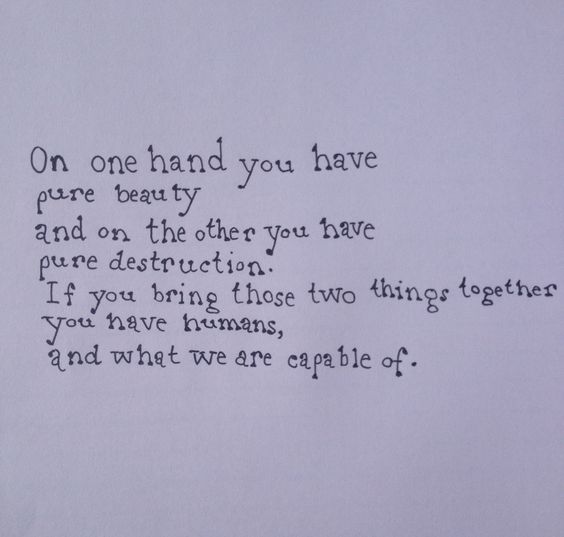 On one hand you have
pure beauty
and on the other you have
pure destruction.
If you bring those two things together
you have humans,
and what we are capable of.